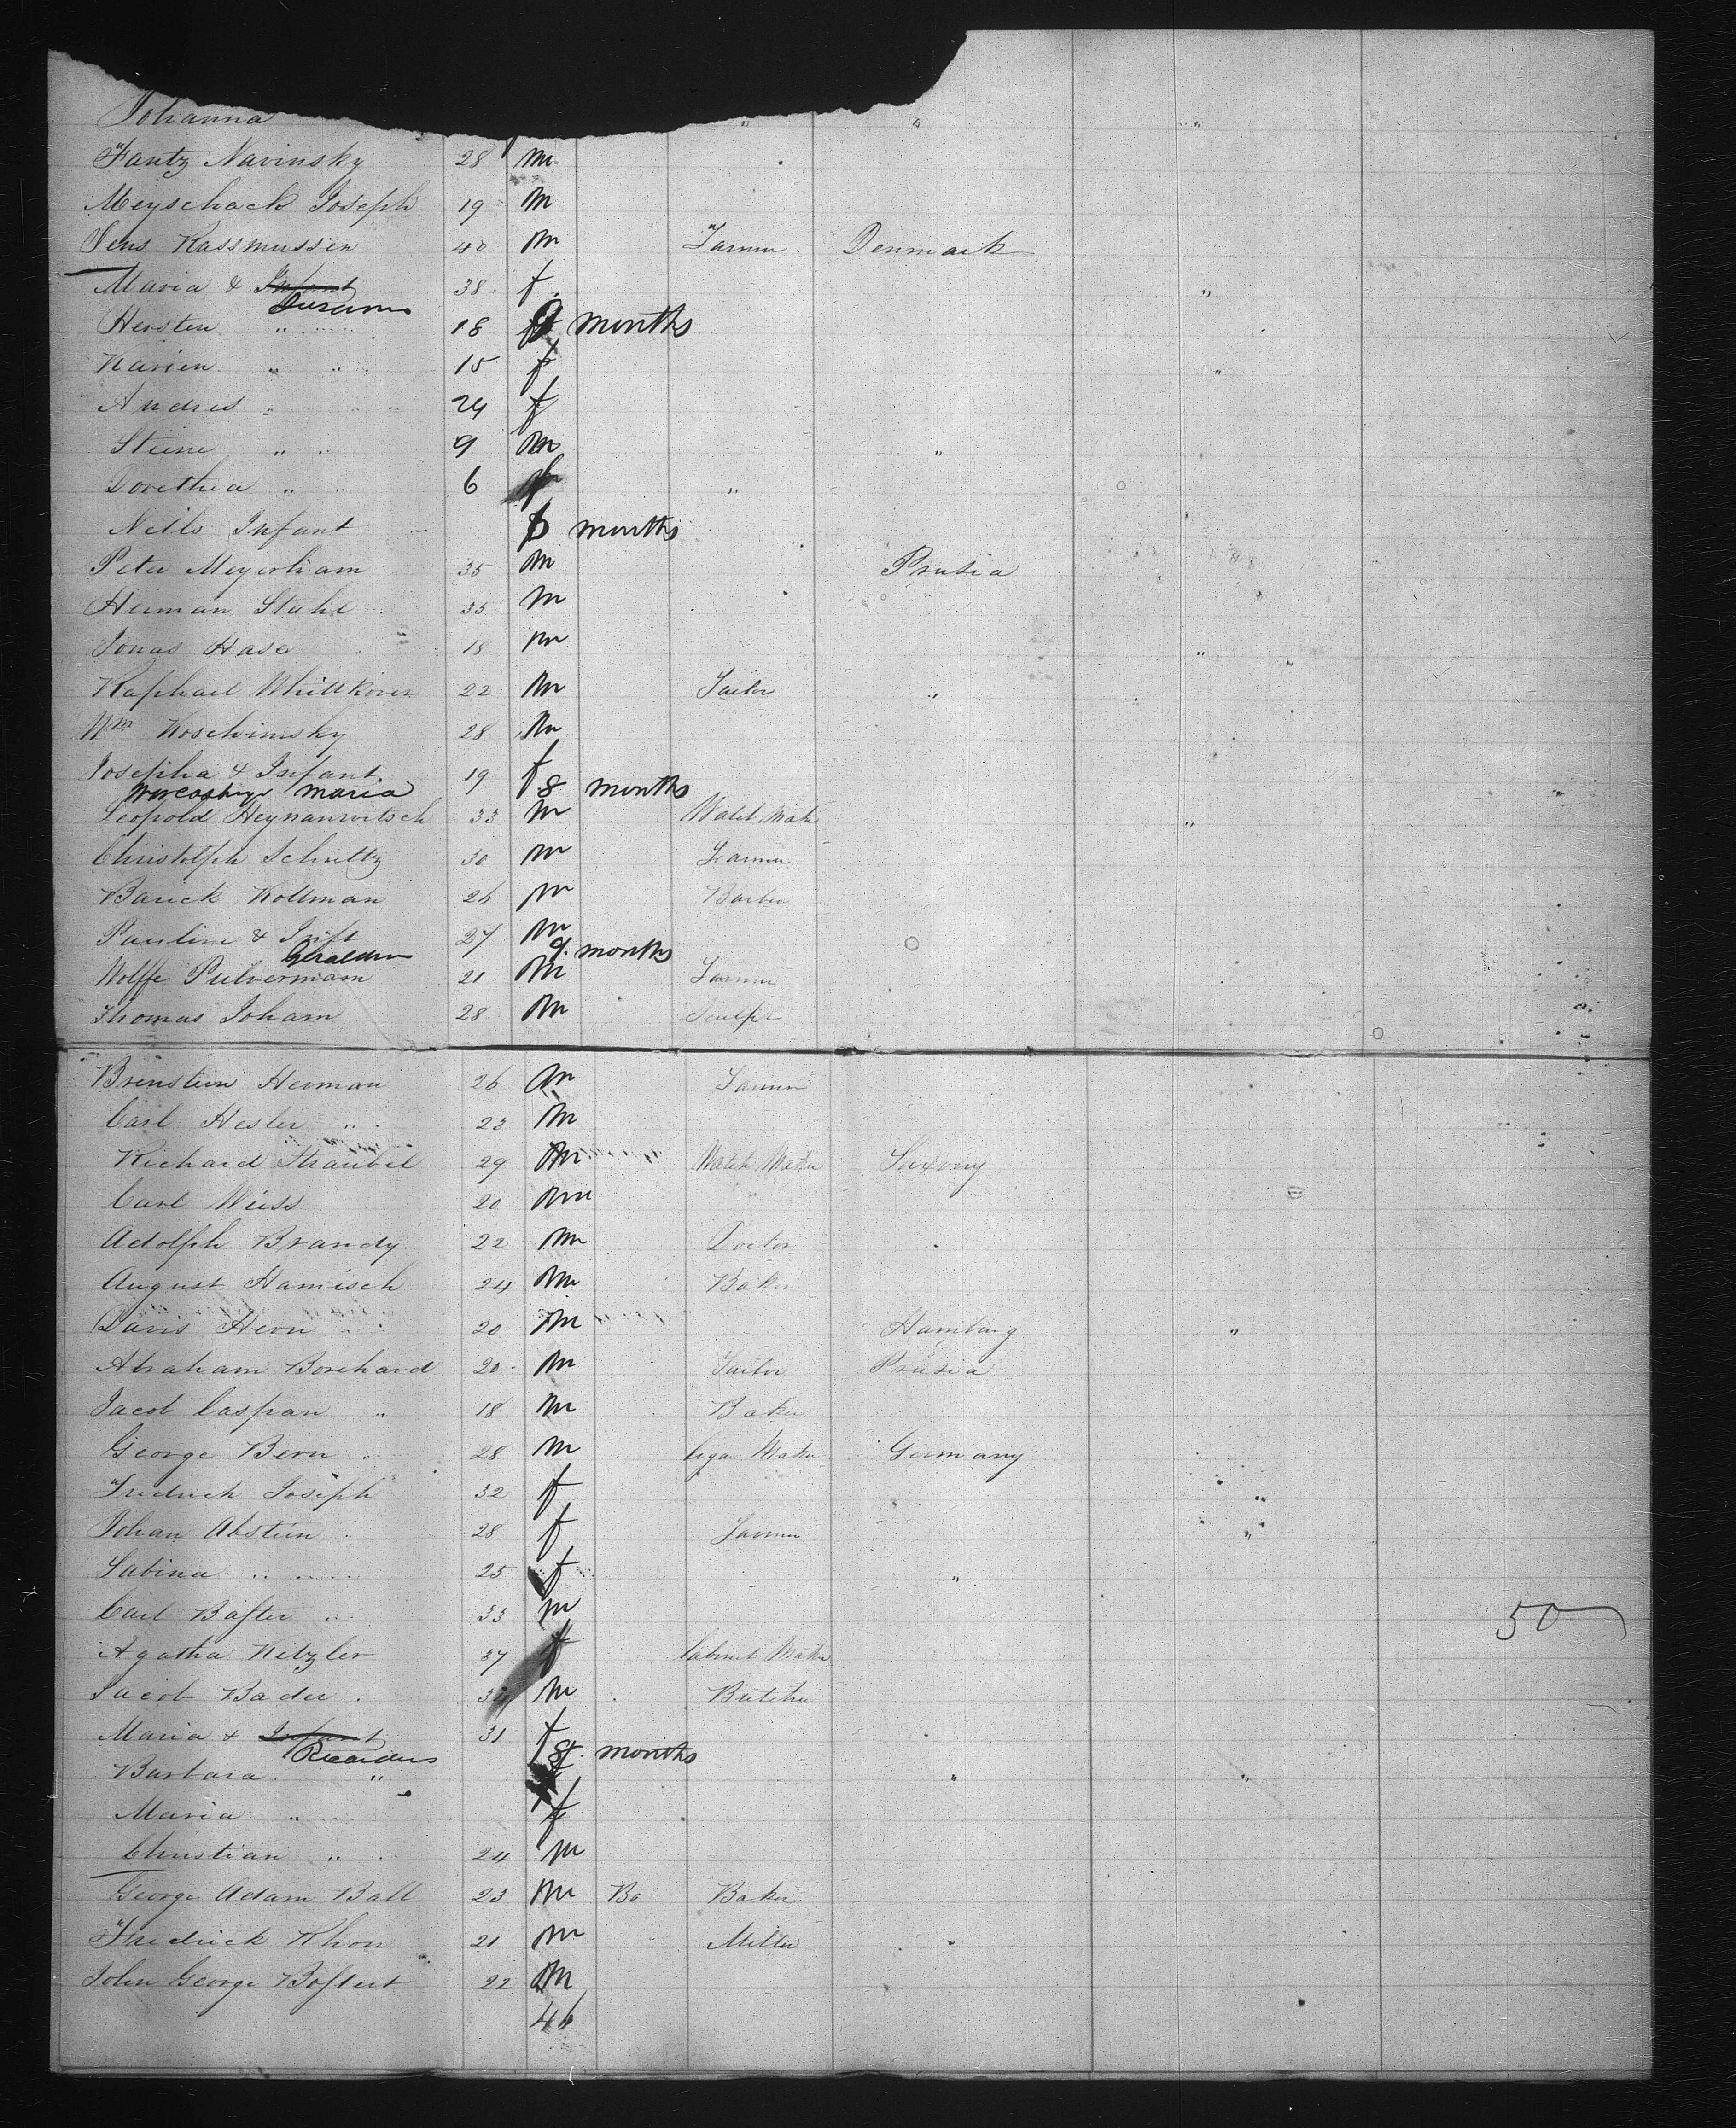 Johanna " " "
Fantz Navinsky 28 m
Meyschack Joseph 19 m
Jens Rassmussen 40 m Farmer Denmark
Maria & Infant 38 f "
Susanna
Kersten " " 18 9 months
Karien " " 15 f "
Andres " 24 f
Stiene " " 9 m "
Dorethea " " 6 f "
Neils Infant 6 months
Peter Meyerham 35 m Prusia
Herman Stahl 35 m
Jonas Hase 18 m "
Raphael Whittkoven 22 m Tailor "
Wm Koschinsky 28 m
Josepha & Infant 19 f
Maria 8 months
Leopold Heynanwitsch 33 m Watch Make "
Christolph Schultz 30 m Farmer
Barick Kollman 26 m Barber
Pauline & Inft 27 m
9. months
Wolffe Pulvermam 21 m Farmer
Thomas Joham 28 m Sculpr
Brenstein Herman 26 m Farmer
Carl Hesler " 23 m
Richard Straubel 29 m Watch Maker Saxony
Carl Weiss 20 m
Adolph Brandy 22 m Doctor
August Hamisch 24 m Baker
Davis Heon 20 m Hamburg "
Abraham Borchard 20 m Tailor Prusia
Jacob Caspan " 18 m Baker
George Bern 28 m Cigar Maker Germany
Fredrich Joseph 32 f "
Johan Abstein 28 f Farmer "
Sabina " " 25 f "
Carl Bafter " 33 m 50
Agatha Kitzler 37 f Cabinet Maker
Jacob Bader . 34 m Butcher
Maria & Infant 31 f
8 months
Barbara " " "
Maria " f
Christian " 24 m
George Adam Ball 23 m Ba Baker
Fredrick Khon 21 m Miller
John George Boftert 22 m
46